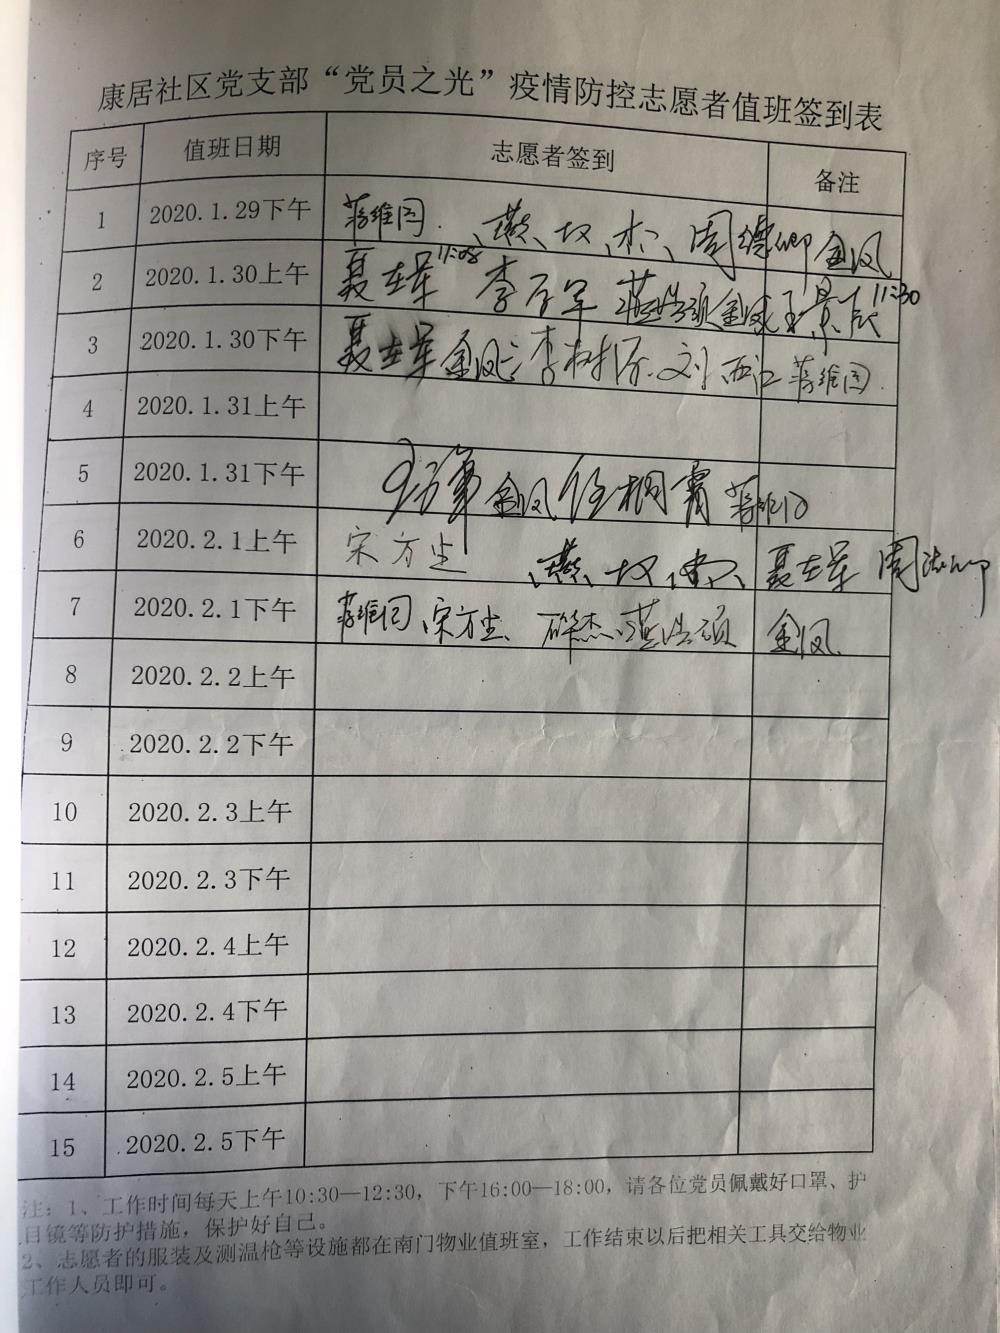 康居社区党支部“党员之光”疫情防控志愿者值班签到表
序号 值班日期 志愿者签到 备注
1 2020.1.29下午 蒋维国 周德卿 金凤
2 2020.1.30上午 聂在军 11:08 金凤 王景欣 11:30
3 2020.1.30下午 聂在军 金凤 李树 刘 蒋维国
4 2020.1.31上午
5 2020.1.31下午 金凤 任桐霄 蒋维国
6 2020.2.1上午 宋方尘 聂在军 周德卿
7 2020.2.1下午 蒋维国、宋方尘、 金凤
8 2020.2.2上午
9 2020.2.2下午
10 2020.2.3上午
11 2020.2.3下午
12 2020.2.4上午
13 2020.2.4下午
14 2020.2.5上午
15 2020.2.5下午
注：1、工作时间每天上午10:30—12:30，下午16:00—18:00，请各位党员佩戴好口罩、护
目镜等防护措施，保护好自己。
2、志愿者的服装及测温枪等设施都在南门物业值班室，工作结束以后把相关工具交给物业
工作人员即可。